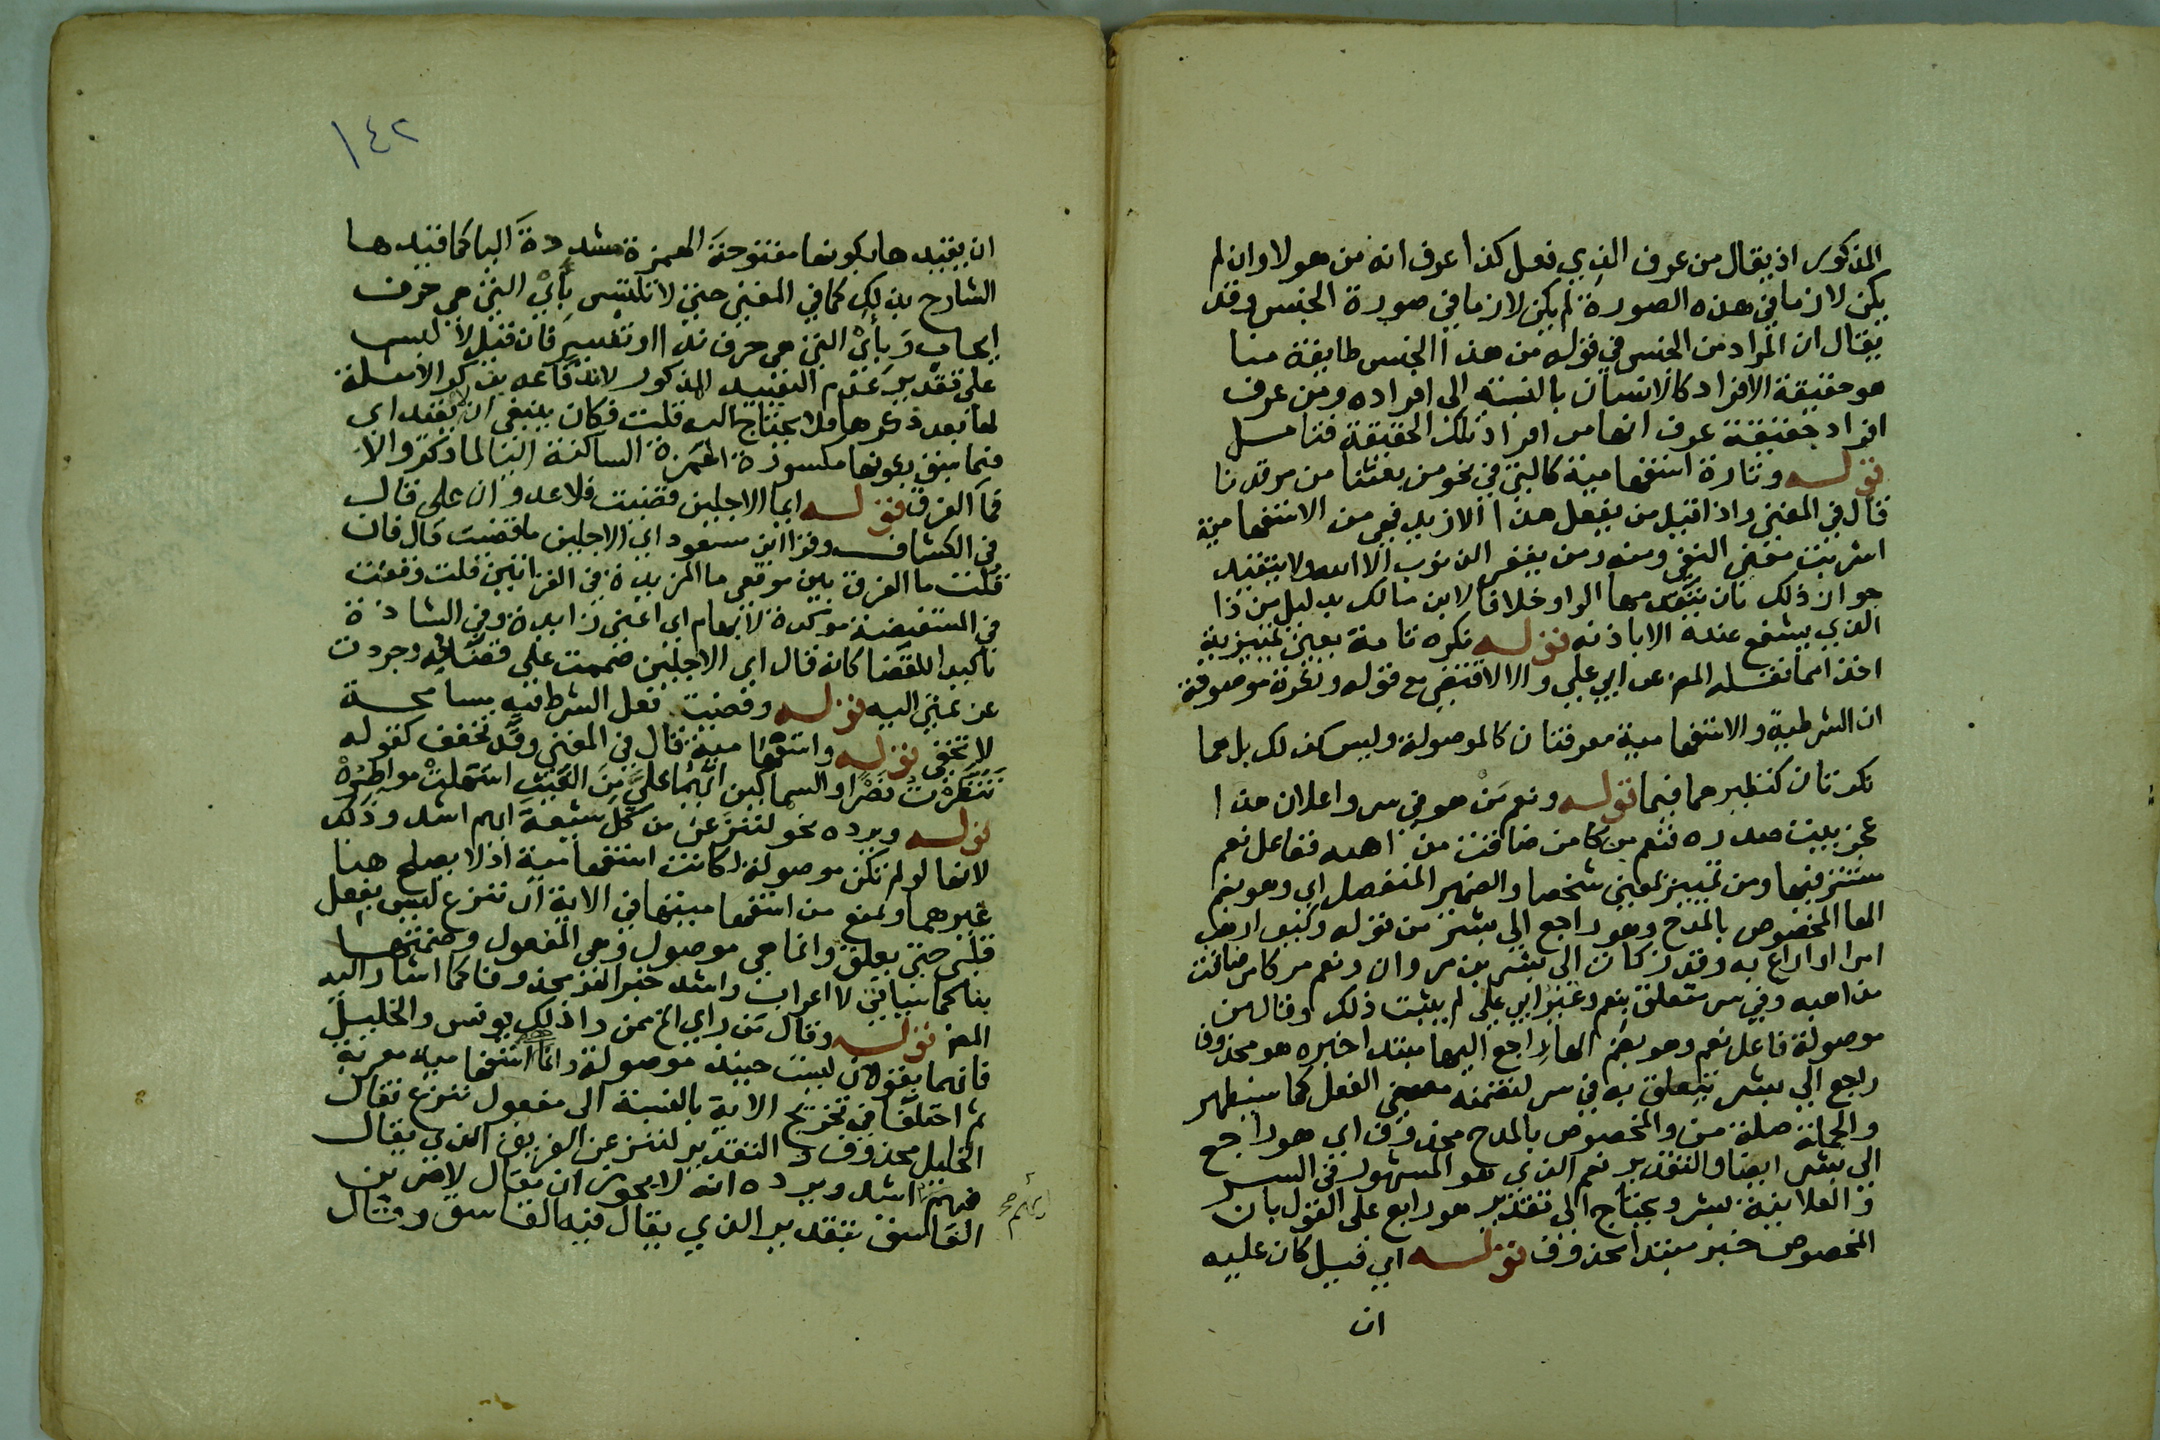 المذكور اذ يقال من عرف الذي فعل كذا عرف انه من هولا وان لم
يكن لازما في هذه الصورة لم يكن لازما في صورة الجنس وقد
يقال ان المراد من الجنس في قوله من هذا الجنس طايفة منا
هو حقيقة الافراد كالانسان بالنسبة الى افراده ومن عرف
افراد حقيقة عرف انها من افراد تلك الحقيقة فتامل
قوله وتارة استفهامية كالتي في نحو من بعثنا من مرقدنا
قال في المغني واذا قيل من يفعل هذا الا زيد فهي من الاستفهامية
اشربت معنى النفي ومنه ومن يغفر الذنوب الا الله ولا يتقيد
جواز ذلك بان يتقدمها الواو خلافا لابن مالك بدليل من ذا
الذي يشفع عنده الا باذنه قوله نكره تامة يعني تمييزية
اخذا مما نقله المص عن ابي علي والا لاقتضى مع قوله ونكرة موصوفة
ان الشرطية والاستفهامية معرفتان كالموصولة وليس كذلك بل هما
نكرتان كنظيرهما فيما قوله ونعم من هو في سر واعلان هذا
عجز بيت صدره فنعم مزكا من ضاقت مذاهبه ففاعل نعم
مستتر فيها ومن تمييز بمعنى شخصا والضمير المنفصل اي وهو بضم
الها المخصوص بالمدح وهو راجع الى بشر من قوله وكيف ارهب
امرا او اراع به وقد زكات الى بشر بن مروان ونعم مزكا من ضاقت
مذاهبه وفي سر متعلق بنعم وغير ابي علي لم يثبت ذلك وقال من
موصولة فاعل نعم وهو بضم الها راجع اليها مبتدا خبره هو محذوف
راجع الى بشر يتعلق به في سر لتضمنه معنى الفعل كما سيظهر
والجملة صلة من والمخصوص بالمدح محذوف اي هو راجع
الى بشر ايضا والتقدير نعم الذي هو المشهور في السر
والعلانية بشر ويحتاج الى تقدير هو رابع على القول بان
المخصوص خبر مبتدا محذوف قوله اي قيل كان عليه
ان
١٤٢
ان يقيدها بكونها مفتوحة الهمزة مشددة اليا كما قيدها
الشارح بذلك كما في المغني حتى لا تلتبس بأي التي هي حرف
ايجاب وبأي التي هي حرف ندا او تفسير فان قيل لا لبس
على تقدير عدم التقييد المذكور لانه قاعد يذكر الامثلة
لها بعد ذكرها فلا يحتاج اليه قلت فكان ينبغي ان لا يقيد اي
فيما سبق بكونها مكسورة الهمزة الساكنة اليا لما ذكر والا
فما الفرق قوله ايما الاجلين قضيت فلا عدوان علي قال
في الكشاف وقرا ابن مسعود اي الاجلين ما قضيت قال فان
قلت ما الفرق بين موقعي ما المزيدة في القراتين قلت وقعت
في المستفيضة موكدة لابهام اي اعني زايدة وفي الشاذة
تاكيدا للقضا كانه قال اي الاجلين صممت على قضائه وجردت
عزيمتي اليه قوله وقضيت فعل الشرط فيه مسامحة
لا تخفى قوله واستفهامية قال في المغني وقد تخفف كقوله
تنظرت نصرا والسماكين ايهما علي من الغيث استهلت مواطره
قوله ويرده نحو لننزعن من كل شيعة ايهم اشد وذلك
لانها لو لم تكن موصولة لكانت استفهامية اذ لا يصلح هنا
غيرهما ويمنع من استفهاميتها في الاية ان ننزع ليس بفعل
قلبي حتى يعلق وانما هي موصول وهي المفعول وضمتها
بنا كما سياتي لا اعراب واشد خبر لهو محذوفا كما اشار اليه
المص قوله وقال من راي الخ ممن راذلك يونس والخليل
فانهما يقولان ليست حينئذ موصولة وانما استفهامية معربة
ثم اختلفا في تخريج الاية بالنسبة الى مفعول ننزع فقال
الخليل محذوف والتقدير لننزعن الفريق الذي يقال
فيهم اشد ويرده انه لا يجوز ان يقال لاضربن
الفاسق بتقدير الذي يقال فيه الفاسق وقال
ايهم صح